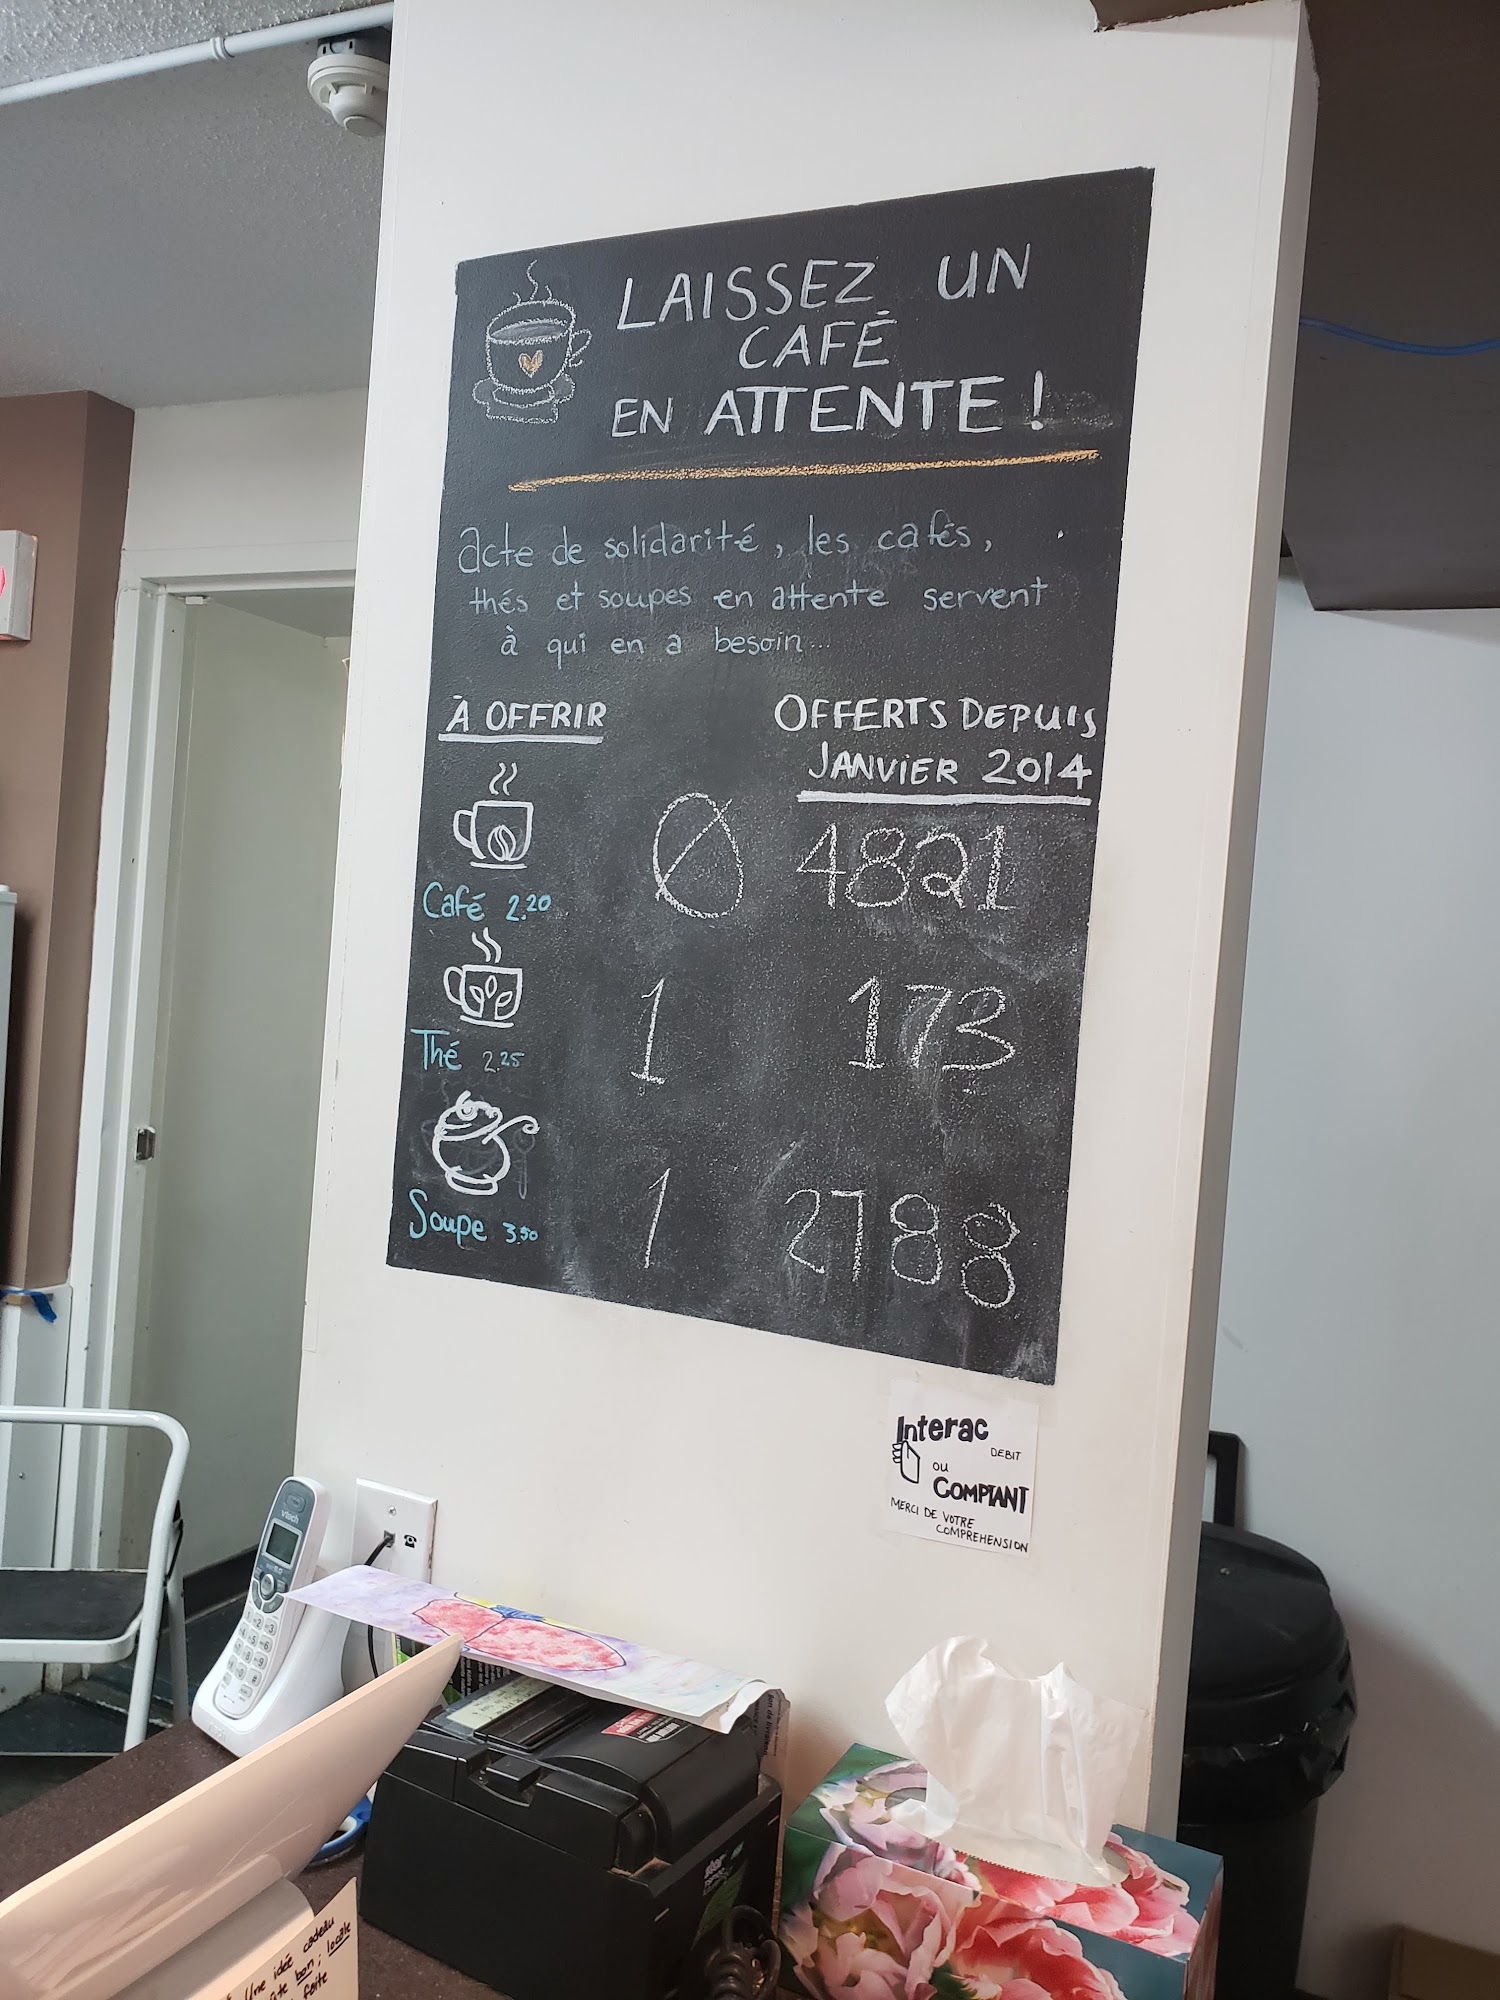 LAISSEZ UN
CAFÉ
EN ATTENTE !
acte de solidarité, les cafés,
thés et soupes en attente servent
à qui en a besoin...
À OFFRIR
OFFERTS DEPUIS
JANVIER 2014
Café 2.20
0
4821
Thé 2.25
1
173
Soupe 3.50
1
2788
Interac
DEBIT
OU
COMPTANT
MERCI DE VOTRE
COMPREHENSION
vtech
star
Une idée cadeau
bon; locale
faite